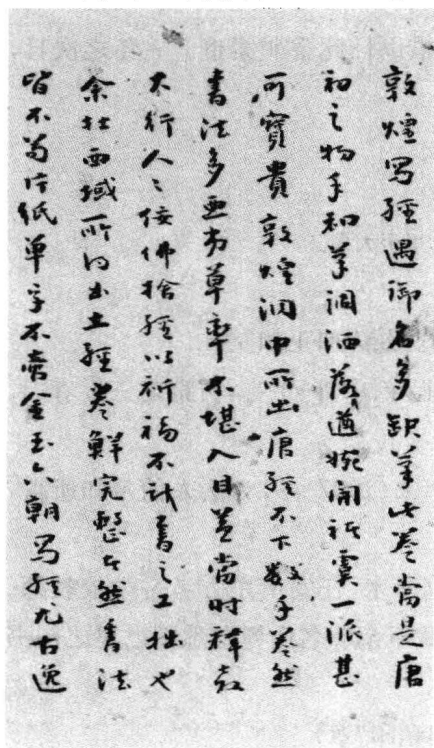 敦煌写經遇御名多缺筆此卷當是唐
初之物手和筆調洒落遒婉開褚虞一派甚
可寶貴敦煌洞中所出唐經不下數手卷然
書法多惡劣草率不堪入目蓋當時釋教
不行人人佞佛捨經以祈福不計書之工拙也
余在西域所得出土經卷鮮完整者然書法
皆不苟片紙單字不啻金玉六朝写經尤古逸